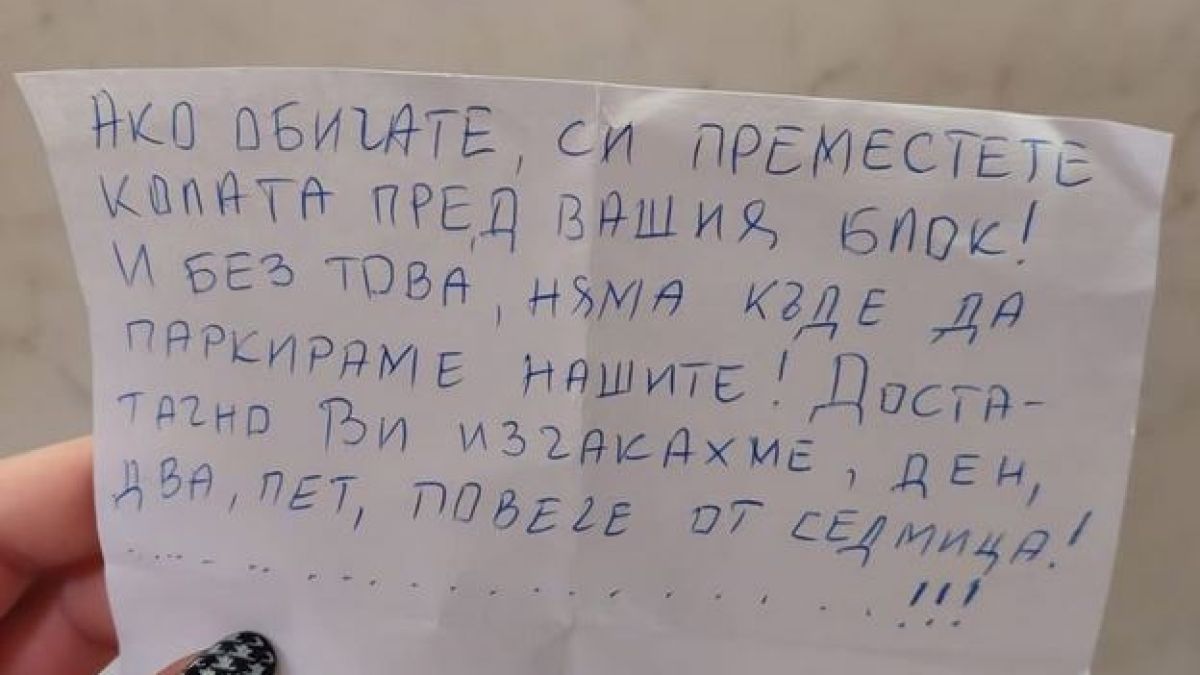 АКО ОБИЧАТЕ, СИ ПРЕМЕСТЕТЕ
КОЛАТА ПРЕД ВАШИЯ БЛОК!
И БЕЗ ТОВА, НЯМА КЪДЕ ДА
ПАРКИРАМЕ НАШИТЕ! ДОСТА-
ТАЧНО ВИ ИЗЧАКАХМЕ, ДЕН,
ДВА, ПЕТ, ПОВЕЧЕ ОТ СЕДМИЦА!
..............................!!!